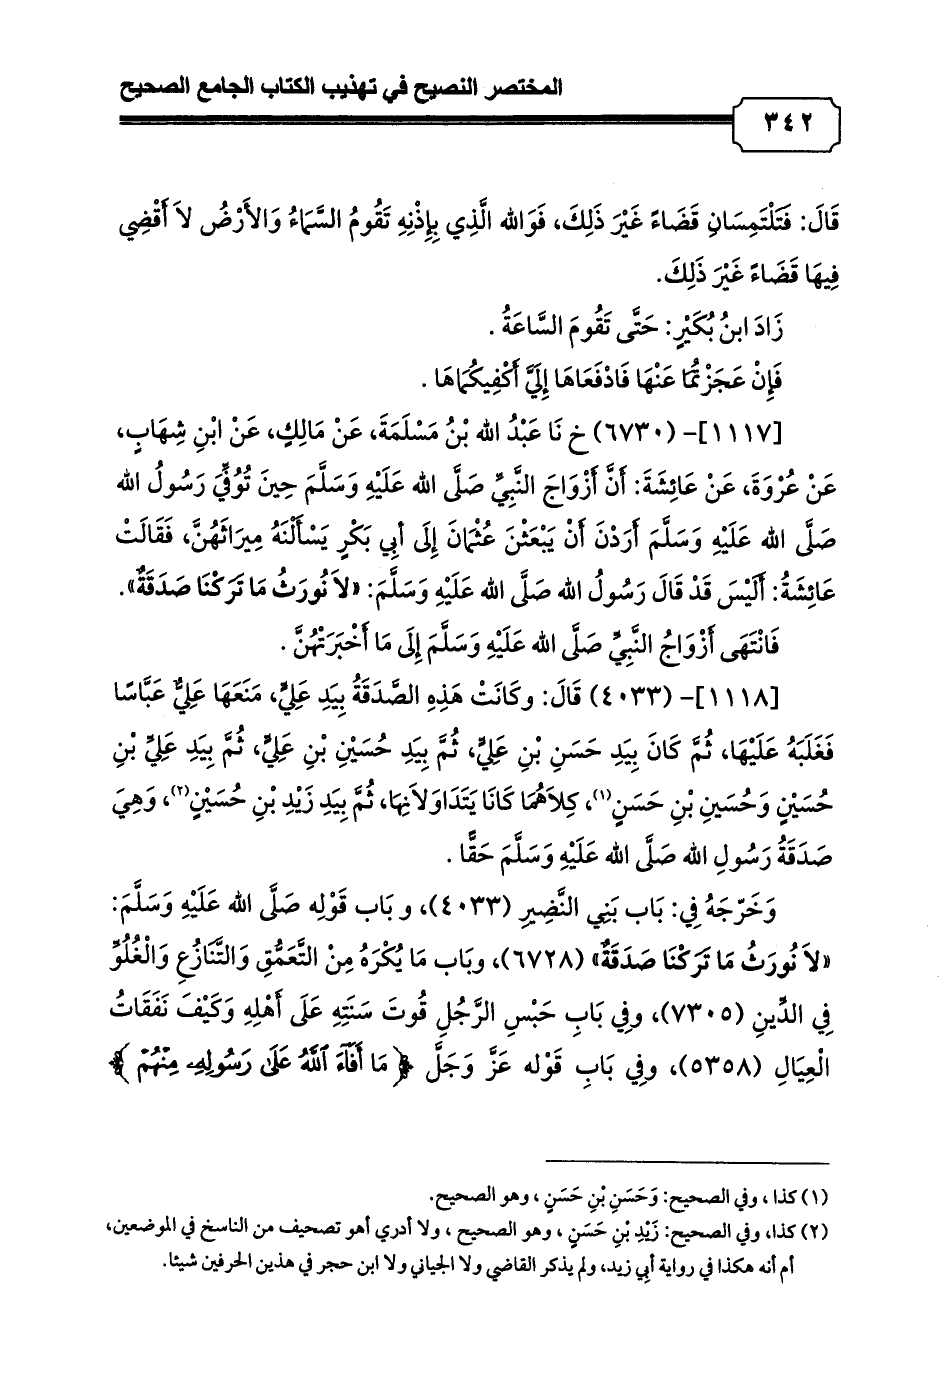 المختصر النصيح في تهذيب الكتاب الجامع الصحيح
٣٤٢
قَالَ: فَتَلْتَمِسَانِ قَضَاءً غَيْرَ ذَلِكَ، فَوَالله الَّذِي بِإِذْنِهِ تَقُومُ السَّمَاءُ وَالأَرْضُ لاَ أَقْضِي
فِيهَا قَضَاءً غَيْرَ ذَلِكَ.
زَادَ ابنُ بُكَيْرٍ: حَتَّى تَقُومَ السَّاعَةُ .
فَإِنْ عَجَزْتُمَا عَنْهَا فَادْفَعَاهَا إِلَيَّ أَكْفِيكُمَاهَا .
[١١١٧]- (٦٧٣٠) خ نَا عَبْدُ الله بْنُ مَسْلَمَةَ، عَنْ مَالِكٍ، عَنْ ابْنِ شِهَابٍ،
عَنْ عُرْوَةَ، عَنْ عَائِشَةَ: أَنَّ أَزْوَاجَ النَّبِيِّ صَلَّى الله عَلَيْهِ وَسَلَّمَ حِينَ تُوُفِّيَ رَسُولُ الله
صَلَّى الله عَلَيْهِ وَسَلَّمَ أَرَدْنَ أَنْ يَبْعَثْنَ عُثْمَانَ إِلَى أَبِي بَكْرٍ يَسْأَلْنَهُ مِيرَاثَهُنَّ، فَقَالَتْ
عَائِشَةُ: أَلَيْسَ قَدْ قَالَ رَسُولُ الله صَلَّى الله عَلَيْهِ وَسَلَّمَ: «لاَ نُورَثُ مَا تَرَكْنَا صَدَقَةٌ».
فَانْتَهَى أَزْوَاجُ النَّبِيِّ صَلَّى الله عَلَيْهِ وَسَلَّمَ إِلَى مَا أَخْبَرَتْهُنَّ .
[١١١٨]- (٤٠٣٣) قَالَ: وكَانَتْ هَذِهِ الصَّدَقَةُ بِيَدِ عَلِيٍّ، مَنَعَهَا عَلِيٌّ عَبَّاسًا
فَغَلَبَهُ عَلَيْهَا، ثُمَّ كَانَ بِيَدِ حَسَنِ بْنِ عَلِيٍّ، ثُمَّ بِيَدِ حُسَيْنِ بْنِ عَلِيٍّ، ثُمَّ بِيَدِ عَلِيِّ بْنِ
حُسَيْنٍ وَحُسَينِ بْنِ حَسَنٍ(١)، كِلاَهُمَا كَانَا يَتَدَاوَلاَنِهَا، ثُمَّ بِيَدِ زَيْدِ بْنِ حُسَيْنٍ(٢)، وَهِيَ
صَدَقَةُ رَسُولِ الله صَلَّى الله عَلَيْهِ وَسَلَّمَ حَقًّا .
وَخَرَّجَهُ فِي: بَاب بَنِي النَّضِيرِ (٤٠٣٣)، و بَاب قَوْلِه صَلَّى الله عَلَيْهِ وَسَلَّمَ:
«لاَ نُورَثُ مَا تَرَكْنَا صَدَقَةٌ» (٦٧٢٨)، وبَاب مَا يُكْرَهُ مِنْ التَّعَمُّقِ وَالتَّنَازُعِ وَالْغُلُوِّ
فِي الدِّينِ (٧٣٠٥)، وفِي بَابِ حَبْسِ الرَّجُلِ قُوتَ سَنَتِهِ عَلَى أَهْلِهِ وَكَيْفَ نَفَقَاتُ
الْعِيَالِ (٥٣٥٨)، وفِي بَابِ قَوْله عَزَّ وَجَلَّ ﴿ مَا أَفَآءَ ٱللَّهُ عَلَىٰ رَسُولِهِۦ مِنْهُمْ ﴾
(١) كذا ، وفي الصحيح: وَحَسَنِ بْنِ حَسَنٍ ، وهو الصحيح.
(٢) كذا، وفي الصحيح: زَيْدِ بْنِ حَسَنٍ ، وهو الصحيح ، ولا أدري أهو تصحيف من الناسخ في الموضعين،
أم أنه هكذا في رواية أبي زيد، ولم يذكر القاضي ولا الجياني ولا ابن حجر في هذين الحرفين شيئا.